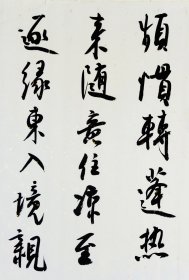 頻慣轉蓬熱
来隨意住凉至
逐緣東入境親